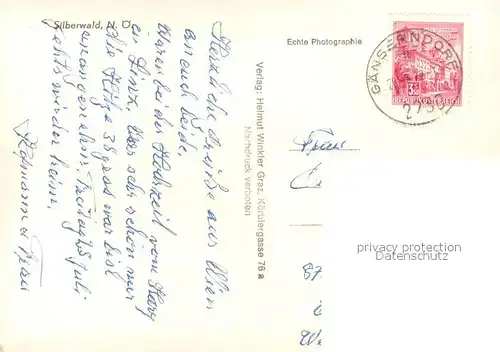 Silberwald, N. Ö.
Herzliche Grüße aus Wien
an euch beide.
Waren bei der Hochzeit vom Karg
in Linz. War sehr schön nur
die Hitze 38 grad war
unangenehm. Freitag 28 Juli
gehts wieder heim.
u Frau
Verlag: Helmut Winkler Graz, Körblergasse 76 a
Nachdruck verboten
Echte Photographie
GÄNSERNDORF
REPUBLIK ÖSTERREICH
Frau
87
privacy protection
watermark